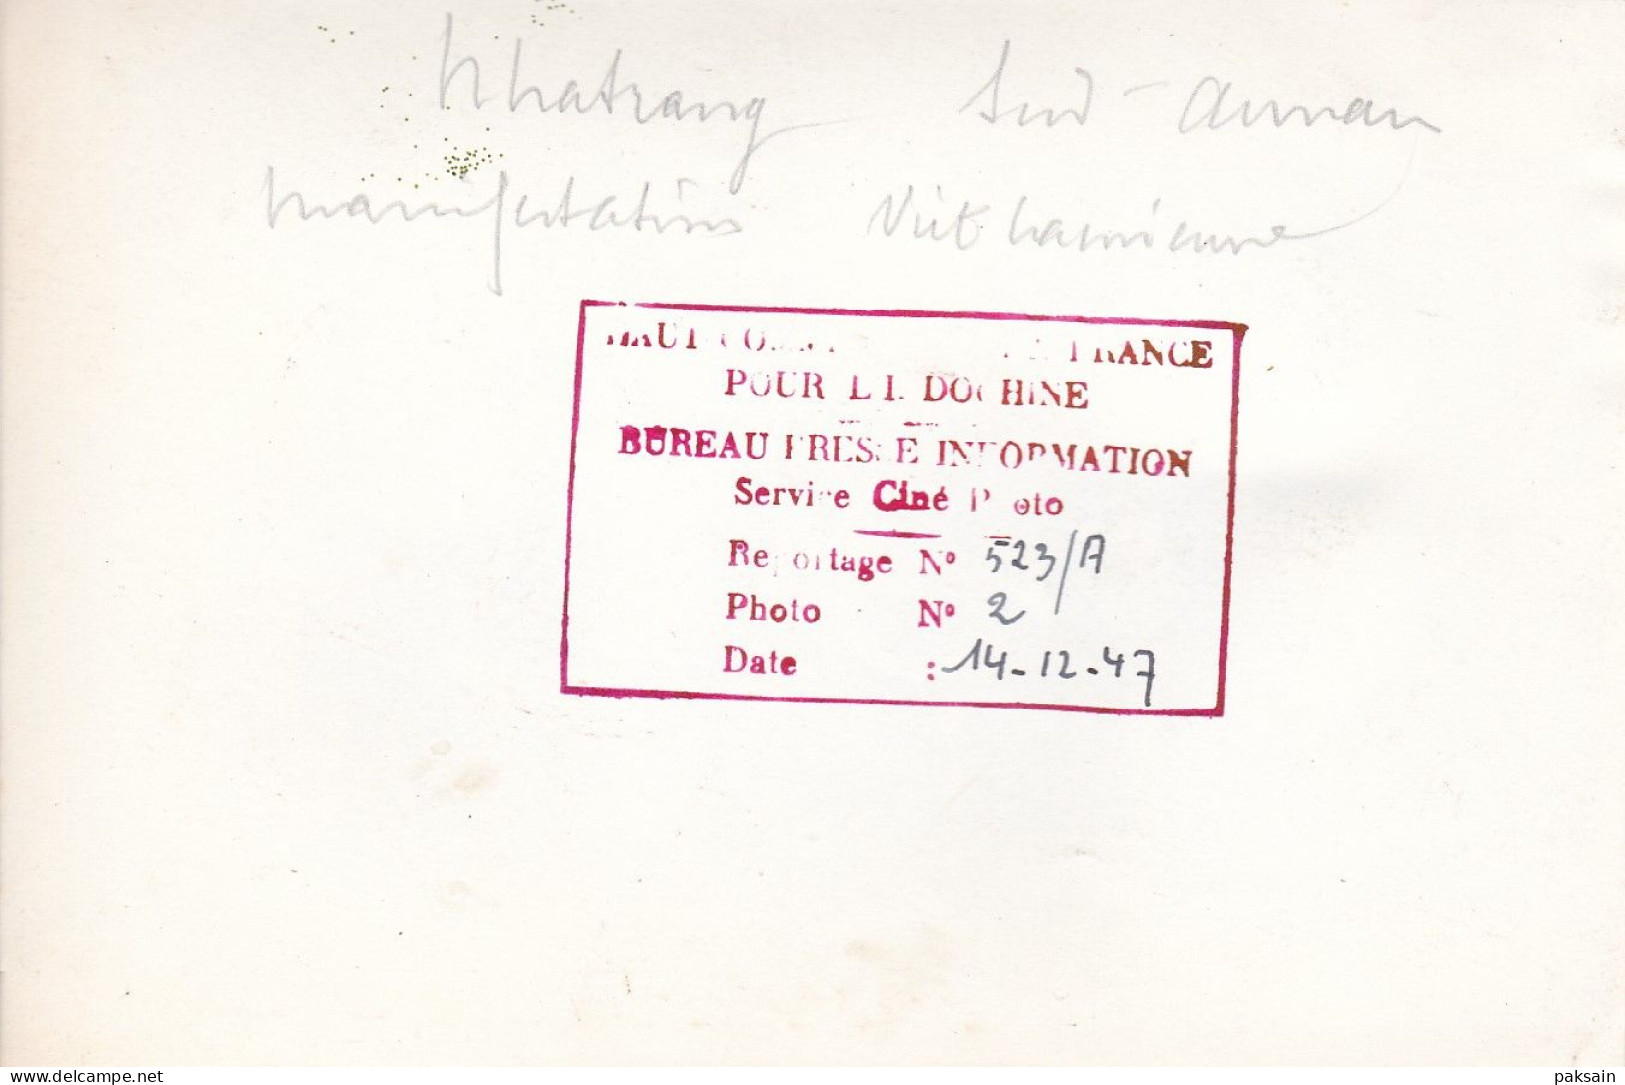 Nhatrang Sud-Annam
manifestation Vietnamienne
HAUT FRANCE
POUR L'INDOCHINE
BUREAU PRESSE INFORMATION
Service Ciné Photo
Reportage N° 523/A
Photo N° 2
Date : 14-12-47
delcampe.net
paksain